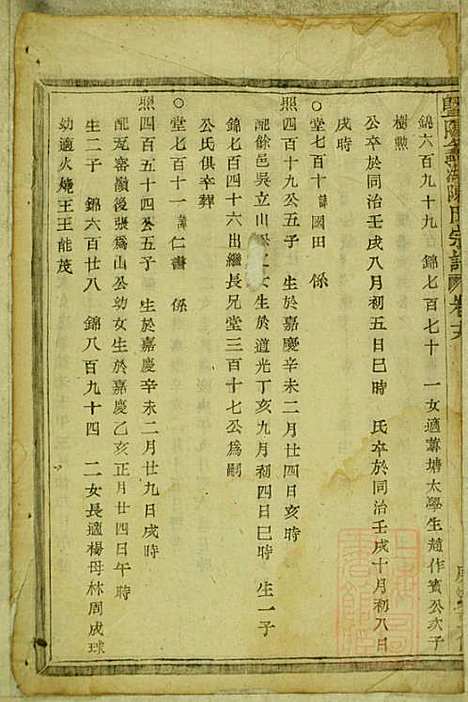 暨陽 陳氏宗譜 卷
錦六百九十九 錦七百七十 一女適 塘太學生趙作賓公次子
樹勲
公卒於同治壬戌八月初五日巳時 氏卒於同治壬戌十月初八日
戌時
○堂七百十 諱國田 係
照四百十九公五子 生於嘉慶辛未二月廿四日亥時
配餘邑吳立山 女生於道光丁亥九月初四日巳時 生一子
錦七百四十六出繼長兄堂三百十七公爲嗣
公氏俱卒葬
○堂七百十一 諱仁書 係
照四百五十四公五子 生於嘉慶辛未二月廿九日戌時
配 審嶺後張爲山公幼女生於嘉慶乙亥正月廿四日午時
生二子 錦六百廿八 錦八百九十四 二女長適楊母林周成球
幼適火燒王王能茂